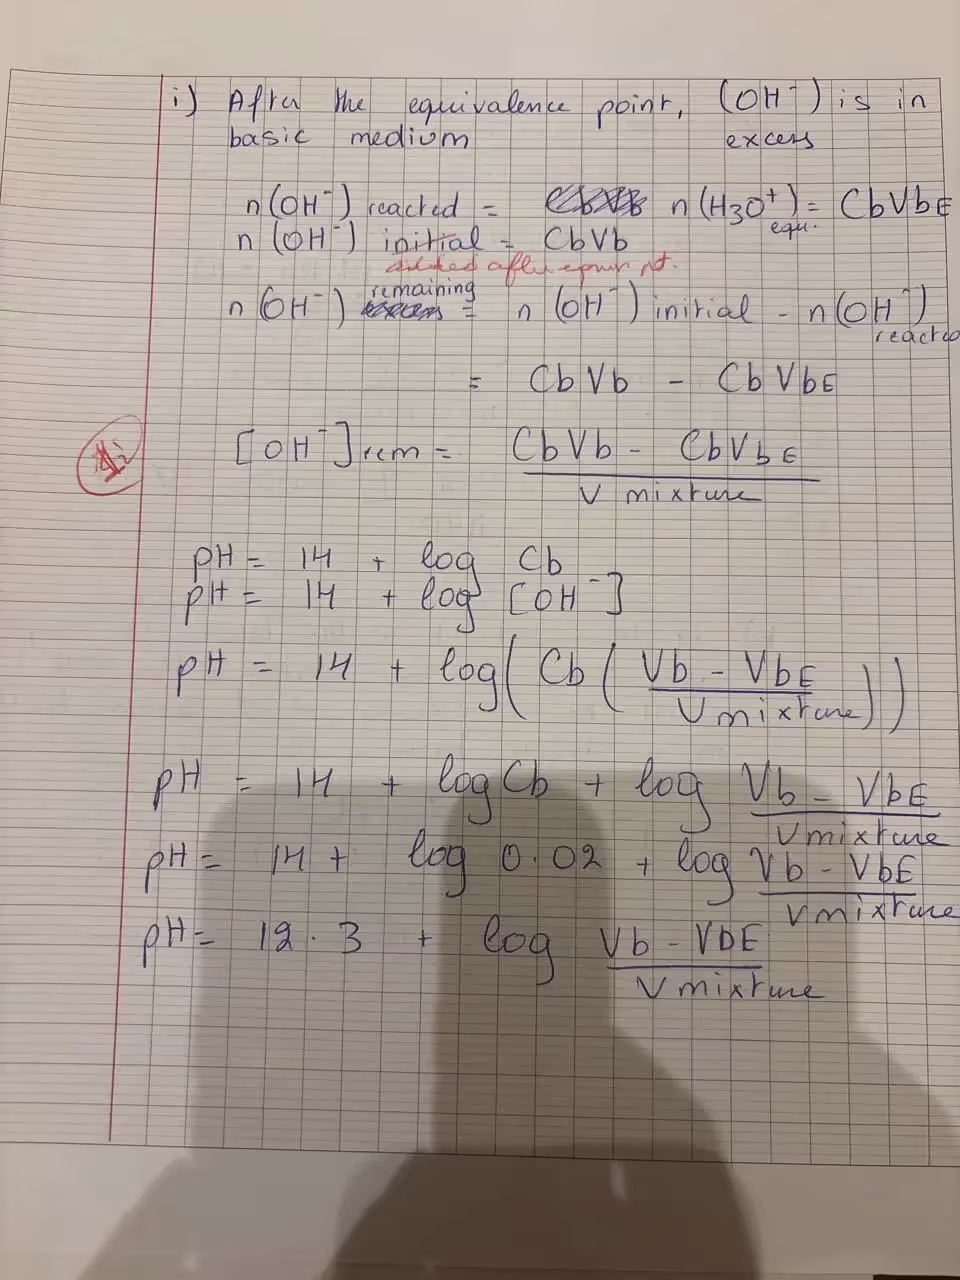 i) After the equivalence point, (OH⁻) is in
basic medium excess
n(OH⁻) reacted = n(H3O⁺) = CbVbE
equ.
n (OH⁻) initial = CbVb
added after
remaining
n(OH⁻) = n (OH⁻) initial - n(OH⁻)
reacted
= CbVb - CbVbE
[OH⁻]rem = CbVb - CbVbE
V mixture
pH = 14 + log Cb
pH = 14 + log [OH⁻]
pH = 14 + log(Cb(Vb - VbE
Vmixture))
pH = 14 + log Cb + log Vb - VbE
Vmixture
pH = 14 + log 0.02 + log Vb - VbE
Vmixture
pH = 12.3 + log Vb - VbE
Vmixture